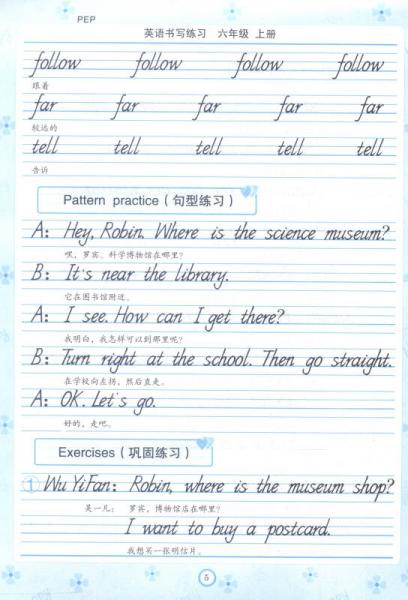 PEP
英语书写练习 六年级 上册
follow follow follow follow
跟着
far far far far far
较远的
tell tell tell tell tell
告诉
Pattern practice（句型练习）
A: Hey, Robin. Where is the science museum?
嘿，罗宾。科学博物馆在哪里？
B: It's near the library.
它在图书馆附近。
A: I see. How can I get there?
我明白，我怎样可以到那里呢？
B: Turn right at the school. Then go straight.
在学校向左拐，然后直走。
A: OK. Let's go.
好的，走吧。
Exercises（巩固练习）
1 Wu YiFan: Robin, where is the museum shop?
吴一凡： 罗宾，博物馆店在哪里？
I want to buy a postcard.
我想买一张明信片。
5